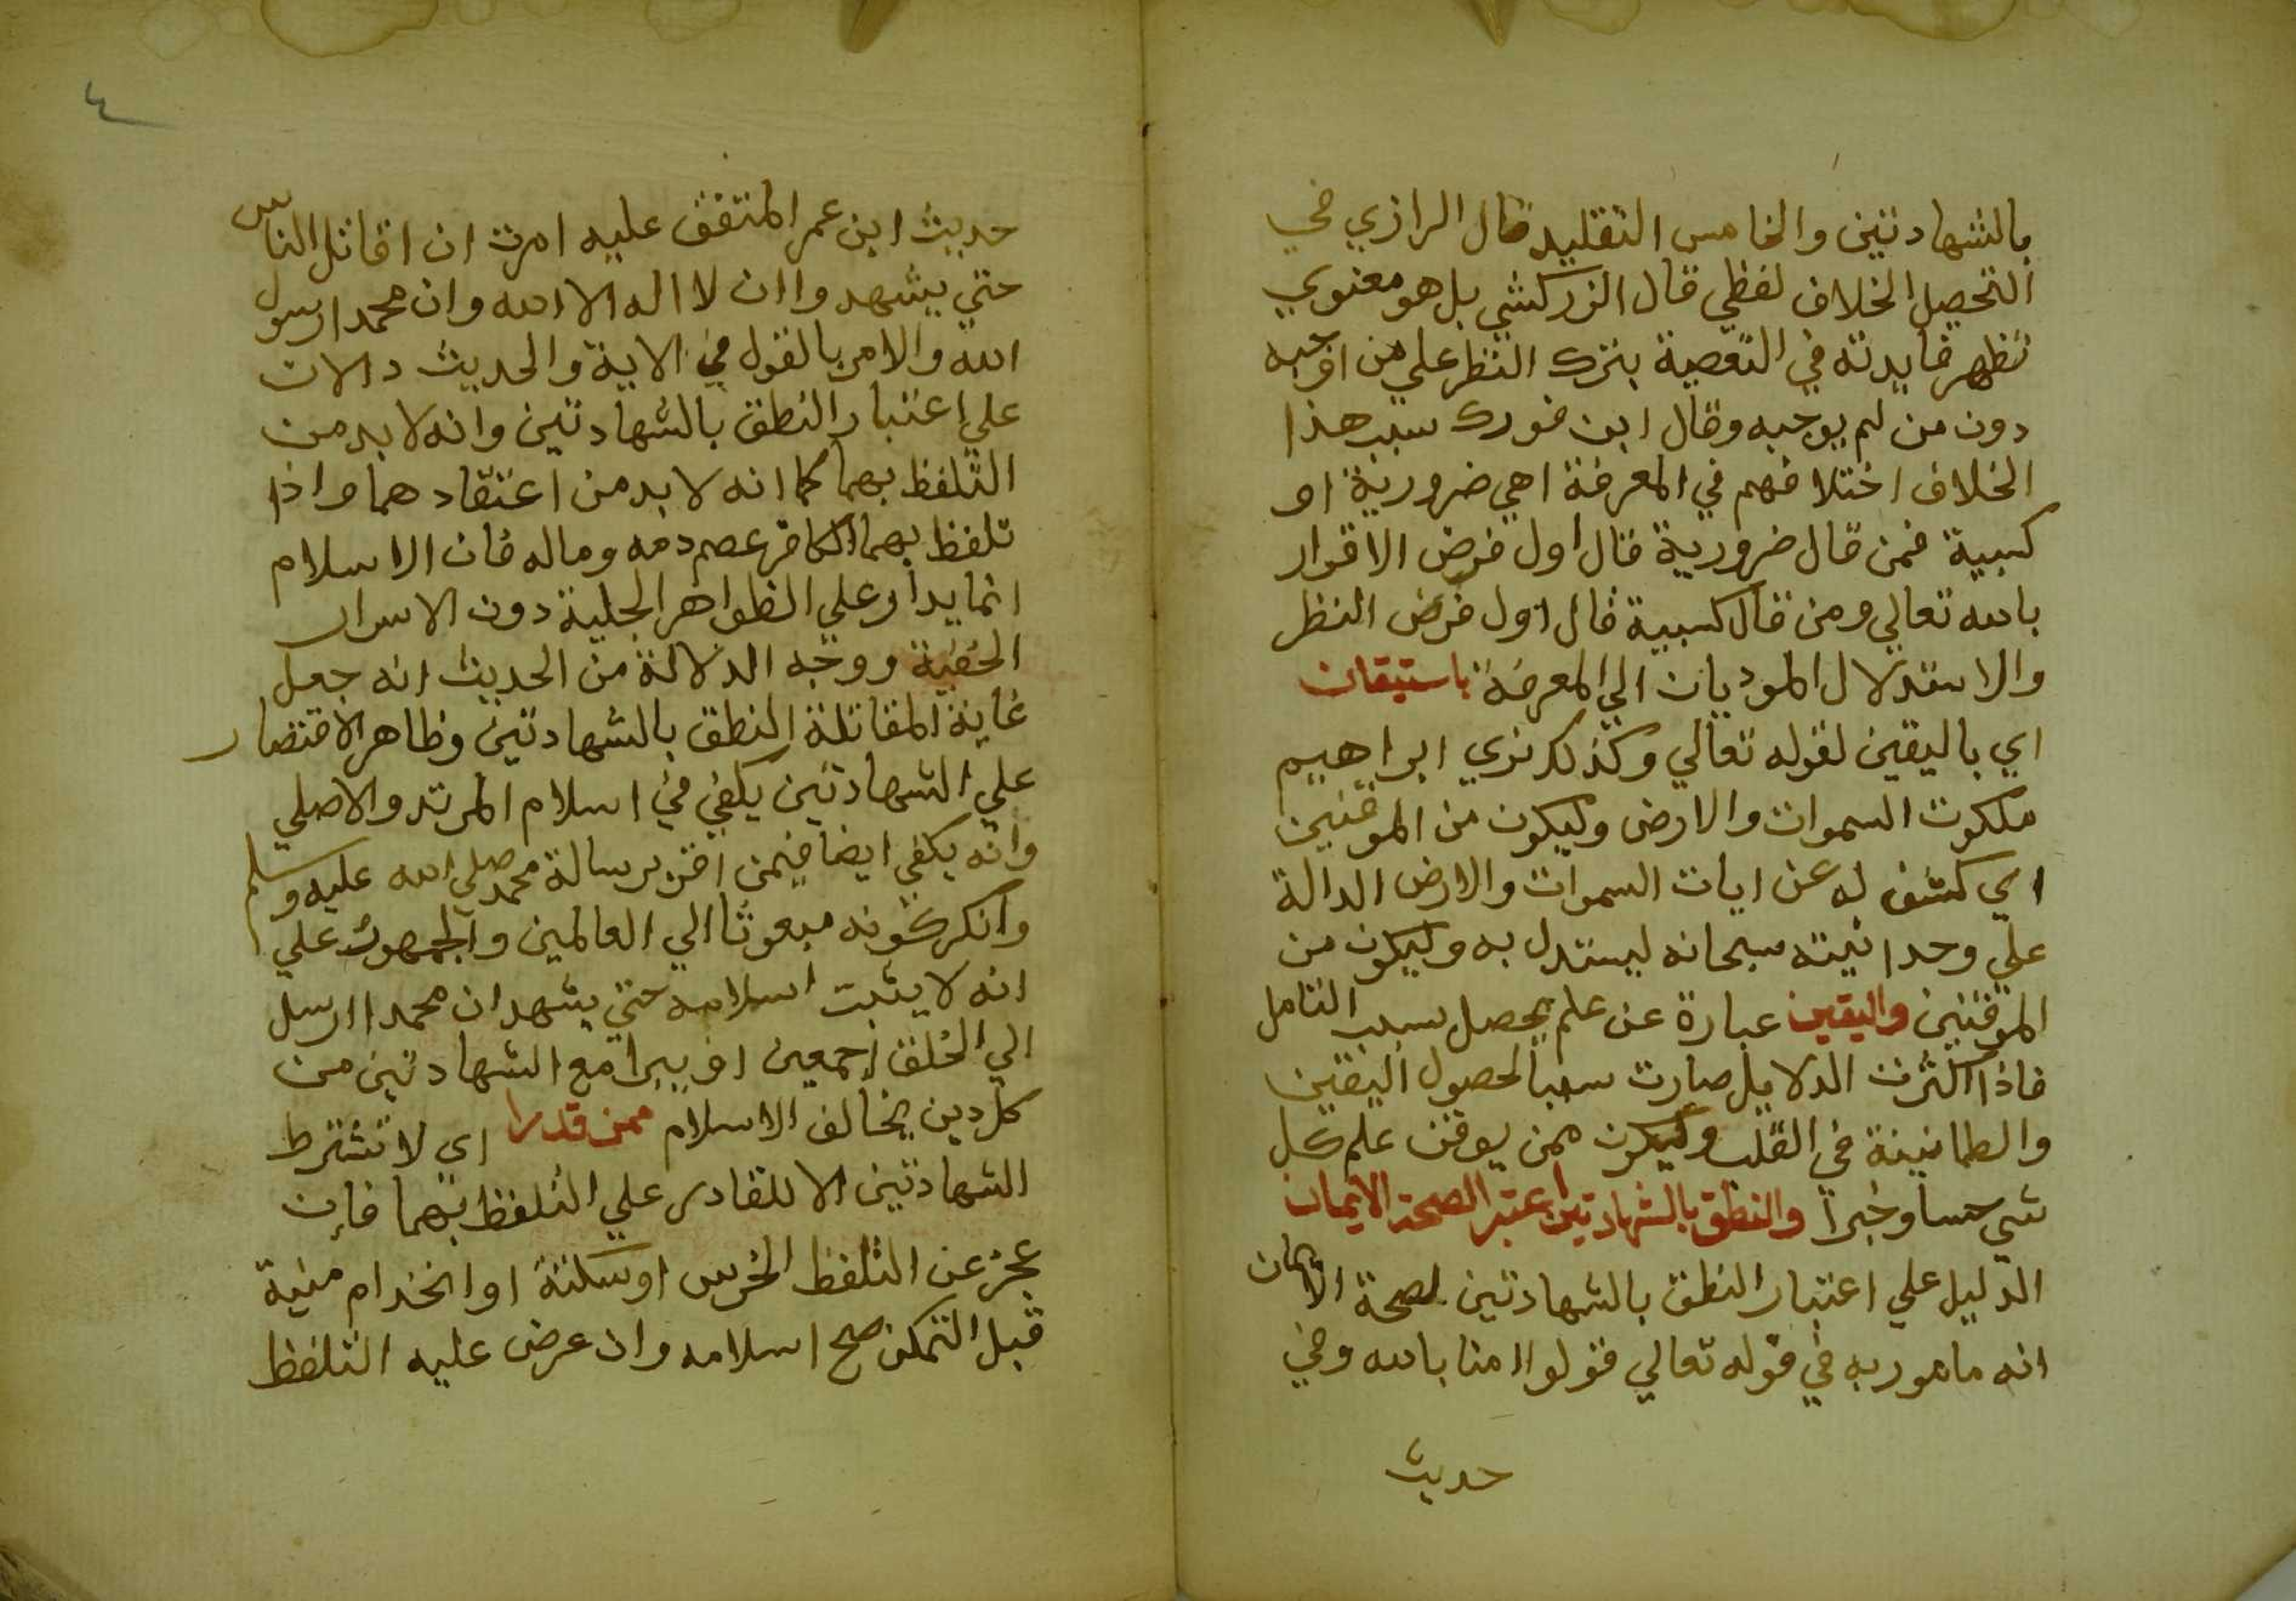 بالشهادتين والخامس التقليد قال الرازي في
التحصيل الخلاف لفظي قال الزركشي بل هو معنوي
تظهر فايدته في التعصية بترك النظر علي من اوجبه
دون من لم يوجبه وقال ابن فورك سبب هذا
الخلاف اختلافهم في المعرفة اهي ضرورية او
كسبية فمن قال ضرورية قال اول فرض الاقرار
بالله تعالي ومن قال كسبية قال اول فرض النظر
والاستدلال الموديان الي المعرفة باستيقان
اي باليقين لقوله تعالي وكذلك نري ابراهيم
ملكوت السموات والارض وليكون من الموقنين
اي كشف له عن ايات السموات والارض الدالة
علي وحدانيته سبحانه ليستدل به وليكون من
الموقنين واليقين عبارة عن علم يحصل بسبب التامل
فاذا اكثرت الدلايل صارت سببا لحصول اليقين
والطمانينة في القلب وليكون ممن يوقن علم كل
شي حسا وخبرا والنطق بالشهادتين اعتبر الصحة الايمان
الدليل علي اعتبار النطق بالشهادتين لصحة الايمان
انه مامور به في قوله تعالي قولوا امنا بالله وفي
حديث
٤
حديث ابن عمر المتفق عليه امرت ان اقاتل الناس
حتي يشهدوا ان لا اله الا الله وان محمدا رسول
الله والامر بالقول في الاية والحديث دالان
علي اعتبار النطق بالشهادتين وانه لا بد من
التلفظ بهما كما انه لا بد من اعتقادهما واذا
تلفظ بهما الكافر عصم دمه وماله فان الاسلام
انما يدار علي الظواهر الجلية دون الاسرار
الخفية ووجه الدلالة من الحديث انه جعل
غاية المقاتلة النطق بالشهادتين وظاهر الاقتصار
علي الشهادتين يكفي في اسلام المرتد والاصلي
وانه يكفي ايضا فيمن اقر برسالة محمد صلي الله عليه وسلم
وانكر كونه مبعوثا الي العالمين والجمهور علي
انه لا يثبت اسلامه حتي يشهد ان محمدا ارسل
الي الخلق اجمعين او يبرا مع الشهادتين من
كل دين يخالف الاسلام ممن قدرا اي لا تشترط
الشهادتين الا للقادر علي التلفظ بهما فان
عجز عن التلفظ لخرس او سكتة او انخدام منية
قبل التمكن صح اسلامه وان عرض عليه التلفظ